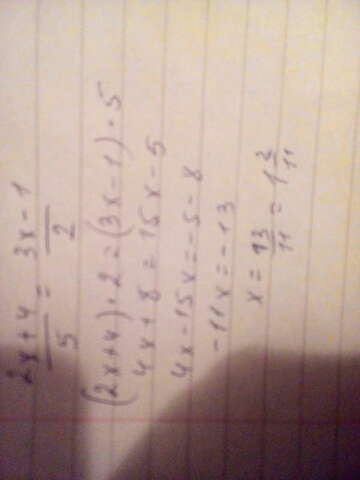 2x+4/5 = 3x-1/2
(2x+4)·2=(3x-1)·5
4x+8=15x-5
4x-15x=-5-8
-11x=-13
x=13/11=1 2/11